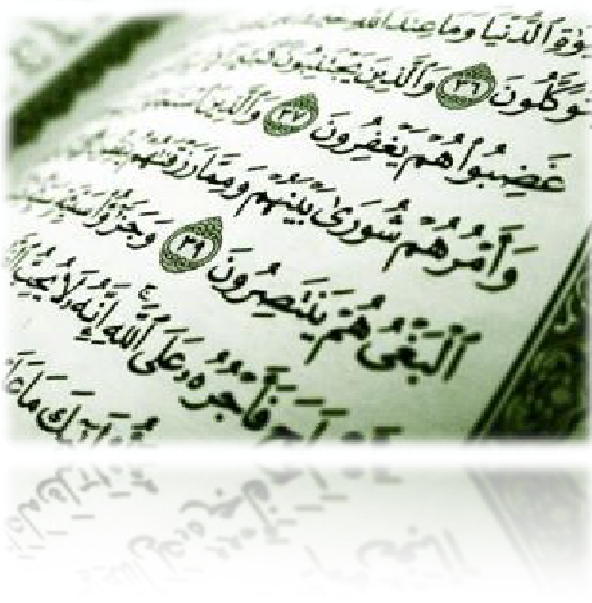 ٱلدُّنْيَا وَمَا عِندَ ٱللَّهِ
وَكَّلُونَ ٣٦ وَٱلَّذِينَ يَجْتَنِبُونَ
غَضِبُوا۟ هُمْ يَغْفِرُونَ ٣٧ وَٱلَّذِينَ
وَأَمْرُهُمْ شُورَىٰ بَيْنَهُمْ وَمِمَّا رَزَقْنَٰهُمْ
ٱلْبَغْىُ هُمْ يَنتَصِرُونَ ٣٩ وَجَزَٰٓؤُا۟
فَأَجْرُهُۥ عَلَى ٱللَّهِ ۚ إِنَّهُۥ لَا يُحِبُّ
مَا